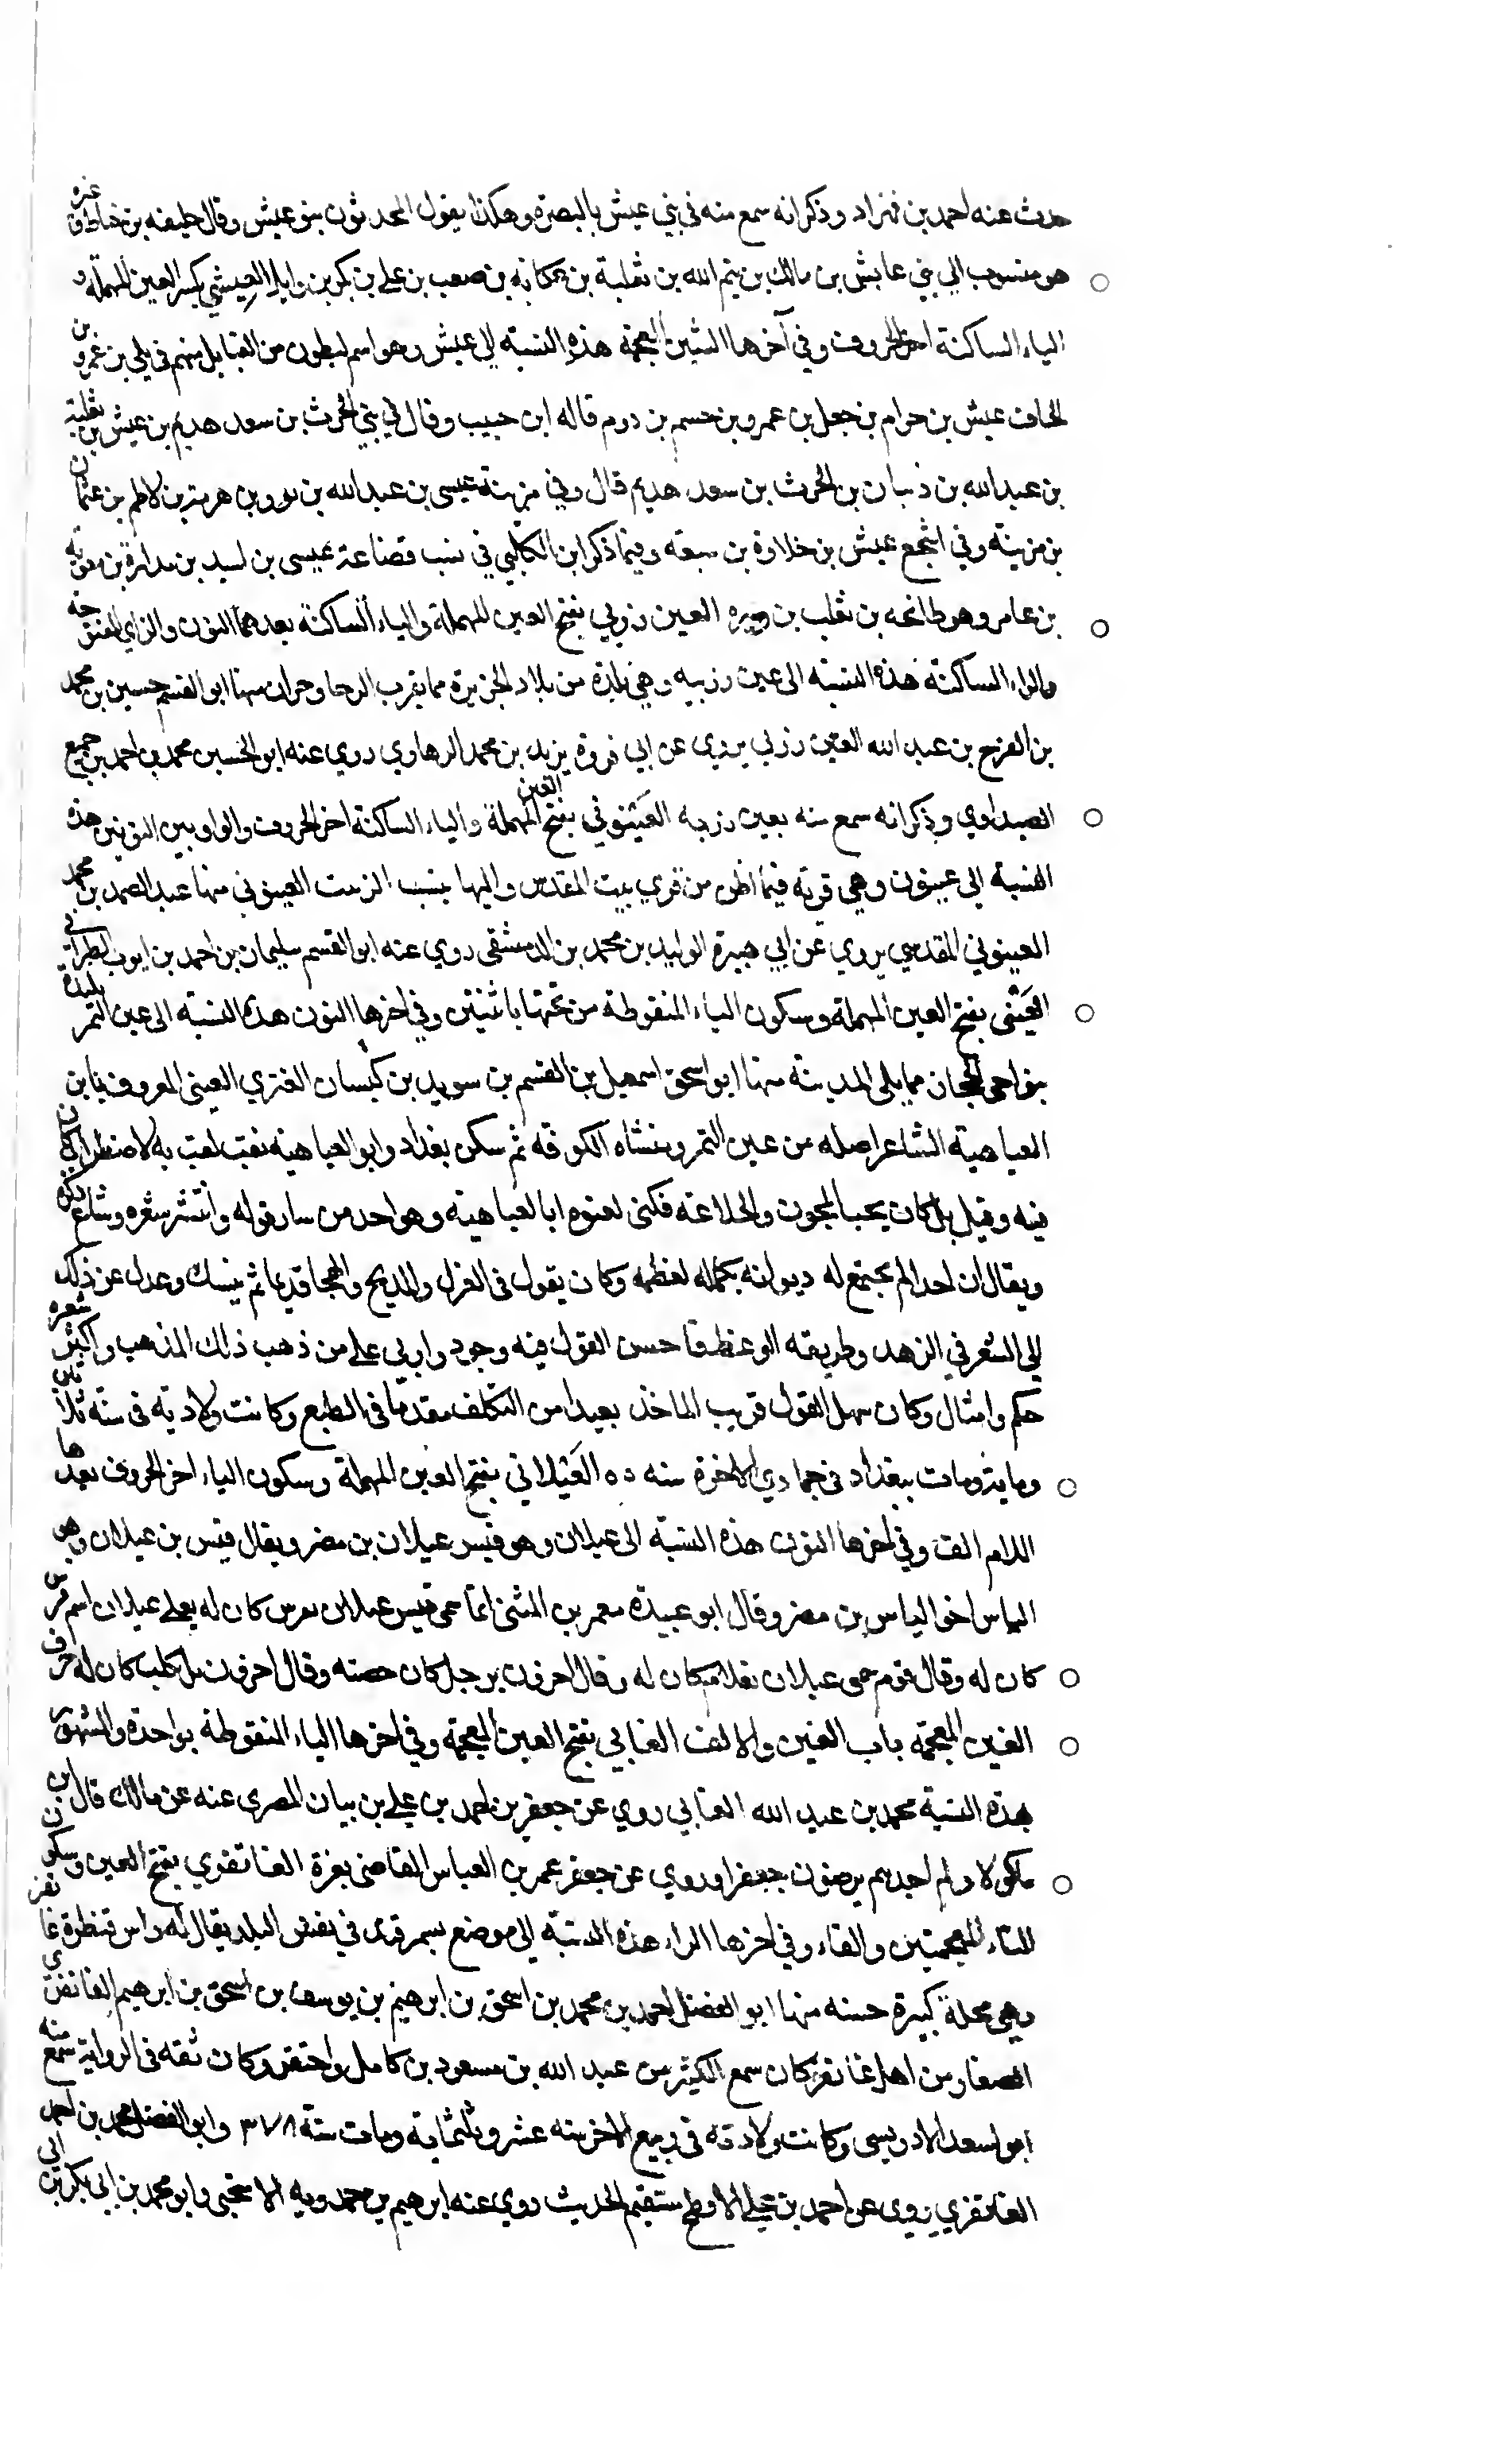 حدث عنه احمد بن فهزاد وذكر انه سمع منه في بني عيش بالبصرة وهكذا يقول المحدثون بنو عيش وقال خليفه بن خياط وغيره
هو منسوب الي بني عايش بن مالك بن تيم الله بن ثعلبة بن عكابه بن صعب بن علي بن بكر بن وايل العيشي بكسر العين المهملة و
الياء الساكنة اخر الحروف وفي آخرها الشين المعجمة هذه النسبة الي عيش وهو اسم لبطون من القبايل منهم في بلي بن عمرو بن
الحاف عيش بن حرام بن جعل بن عمرو بن جسم بن ودم قاله ابن حبيب وقال في بني الحرث بن سعد هديم بن عيش بن ثعلبة
بن عبد الله بن ذبيان بن الحرث بن سعد هديم قال وفي مزينة عيسى بن عبد الله بن ثور بن هرمة بن لاطم بن عثمان
بن مزينة وفي اشجع عيش بن خلاوة بن سبعه وفيما ذكر ابن الكلبي في نسب قضاعة عيسى بن اسيد بن بدارة بن معوية
بن عامر وهو طابخه بن تغلب بن وبره العين زربي بفتح العين المهملة والياء الساكنة بعدهما النون والزاي المفتوحة
والراء الساكنة هذه النسبة الى عين زربه وهي بلدة من بلاد الجزيرة مما يقرب الرها وحران منها ابو القسم حسين بن محمد
بن الفرج بن عبد الله العين زربي يروي عن ابي فروة يزيد بن محمد الرهاوي روي عنه ابو الحسين محمد بن احمد بن جميع
الصيداوي وذكر انه سمع منه بعين زربه العينوني بفتح العين المهملة والياء الساكنة اخر الحروف والواو بين النونين هذه
النسبة الى عينون وهي قرية فيما اظن من قري بيت المقدس واليها ينسب الزيت العينوني منها عبد الصمد بن محمد
العينوني المقدسي يروي عن ابي هبيرة الوليد بن محمد بن الدمشقي روي عنه ابو القسم سليمان بن احمد بن ايوب الطبراني
العيني بفتح العين المهملة وسكون الياء المنقوطة من تحتها باثنتين وفي اخرها النون هذه النسبة الى عين التمر بليدة
بنواحي الحجاز مما يلي المدينة منها ابو اسحق اسمعيل بن القسم بن سويد بن كيسان العنزي العيني المعروف بابن
العتاهية الشاعر اصله من عين التمر ومنشاه الكوفه ثم سكن بغداد وابو العتاهية لقب لقب به لاضطراب كان
فيه وقيل بل كان يحب المجون والخلاعة فكني لعتوه ابا العتاهية وهو احد من سار قوله وانتشر شعره وشاع ذكره
ويقال ان احدا لم يجتمع له ديوانه بكماله لعظمه وكان يقول في الغزل والمديح والهجا قديما ثم تنسك وعدل عن ذلك
الي الشعر في الزهد وطريقة الوعظ فاحسن القول فيه وجود واربي علي من ذهب ذلك المذهب واكثر شعره
حكم وامثال وكان سهل القول قريب الماخذ بعيدا من التكلف مقدما في الطبع وكانت ولادته في سنة ثلاثين
وماية ومات ببغداد في جمادي الاخرة سنه العيلاني بفتح العين المهملة وسكون الياء اخر الحروف بعدها
اللام الف وفي اخرها النون هذه النسبة الى عيلان وهو قيس عيلان بن مضر ويقال قيس بن عيلان وهو
الياس اخو الياس بن مضر وقال ابو عبيدة معمر بن المثنى انما سمي قيس عيلان بفرس كان له يعني عيلان اسم فرس
كان له وقال قوم سمي عيلان بغلام كان له وقال اخرون برجل كان حضنه وقال اخرون بل كلب كان له حرف
الغين المعجمة باب الغين والالف الغابي بفتح الغين المعجمة وفي اخرها الياء المنقوطة بواحدة والمشهور
بهذه النسبة محمد بن عبد الله الغابي روي عن جعفر بن احمد بن علي بن بيان المصري عنه عن مالك قال ابن
ماكولا ولم اجدهم يرضون جعفرا وروي عن جعفر عمر بن العباس القاضي بغزة الغاتفري بفتح الغين وسكون
التاء المعجمتين والفاء وفي اخرها الراء هذه النسبة الي موضع بسمرقند في نفس البلد يقال له راس قنطرة غاتفر
وهي محلة كبيرة حسنه منها ابو الفضل احمد بن محمد بن اسحق بن ابرهيم بن يوسف بن اسحق بن ابرهيم الغاتفري
الصفار من اهل غاتفر كان سمع الكثير من عبد الله بن مسعود بن كامل واحتفر وكان ثقه في الرواية سمع منه
ابو سعد الادريسي وكانت ولادته في ربيع الاخر سنه عشر وثلثماية ومات سنة ٣٧٨ وابو الفضل محمد بن احمد
الغاتفري يروي عن احمد بن علي الافطح مستقيم الحديث روي عنه ابرهيم بن حمدويه الاشتيخني وابو محمد بن ابي بكر بن ابي